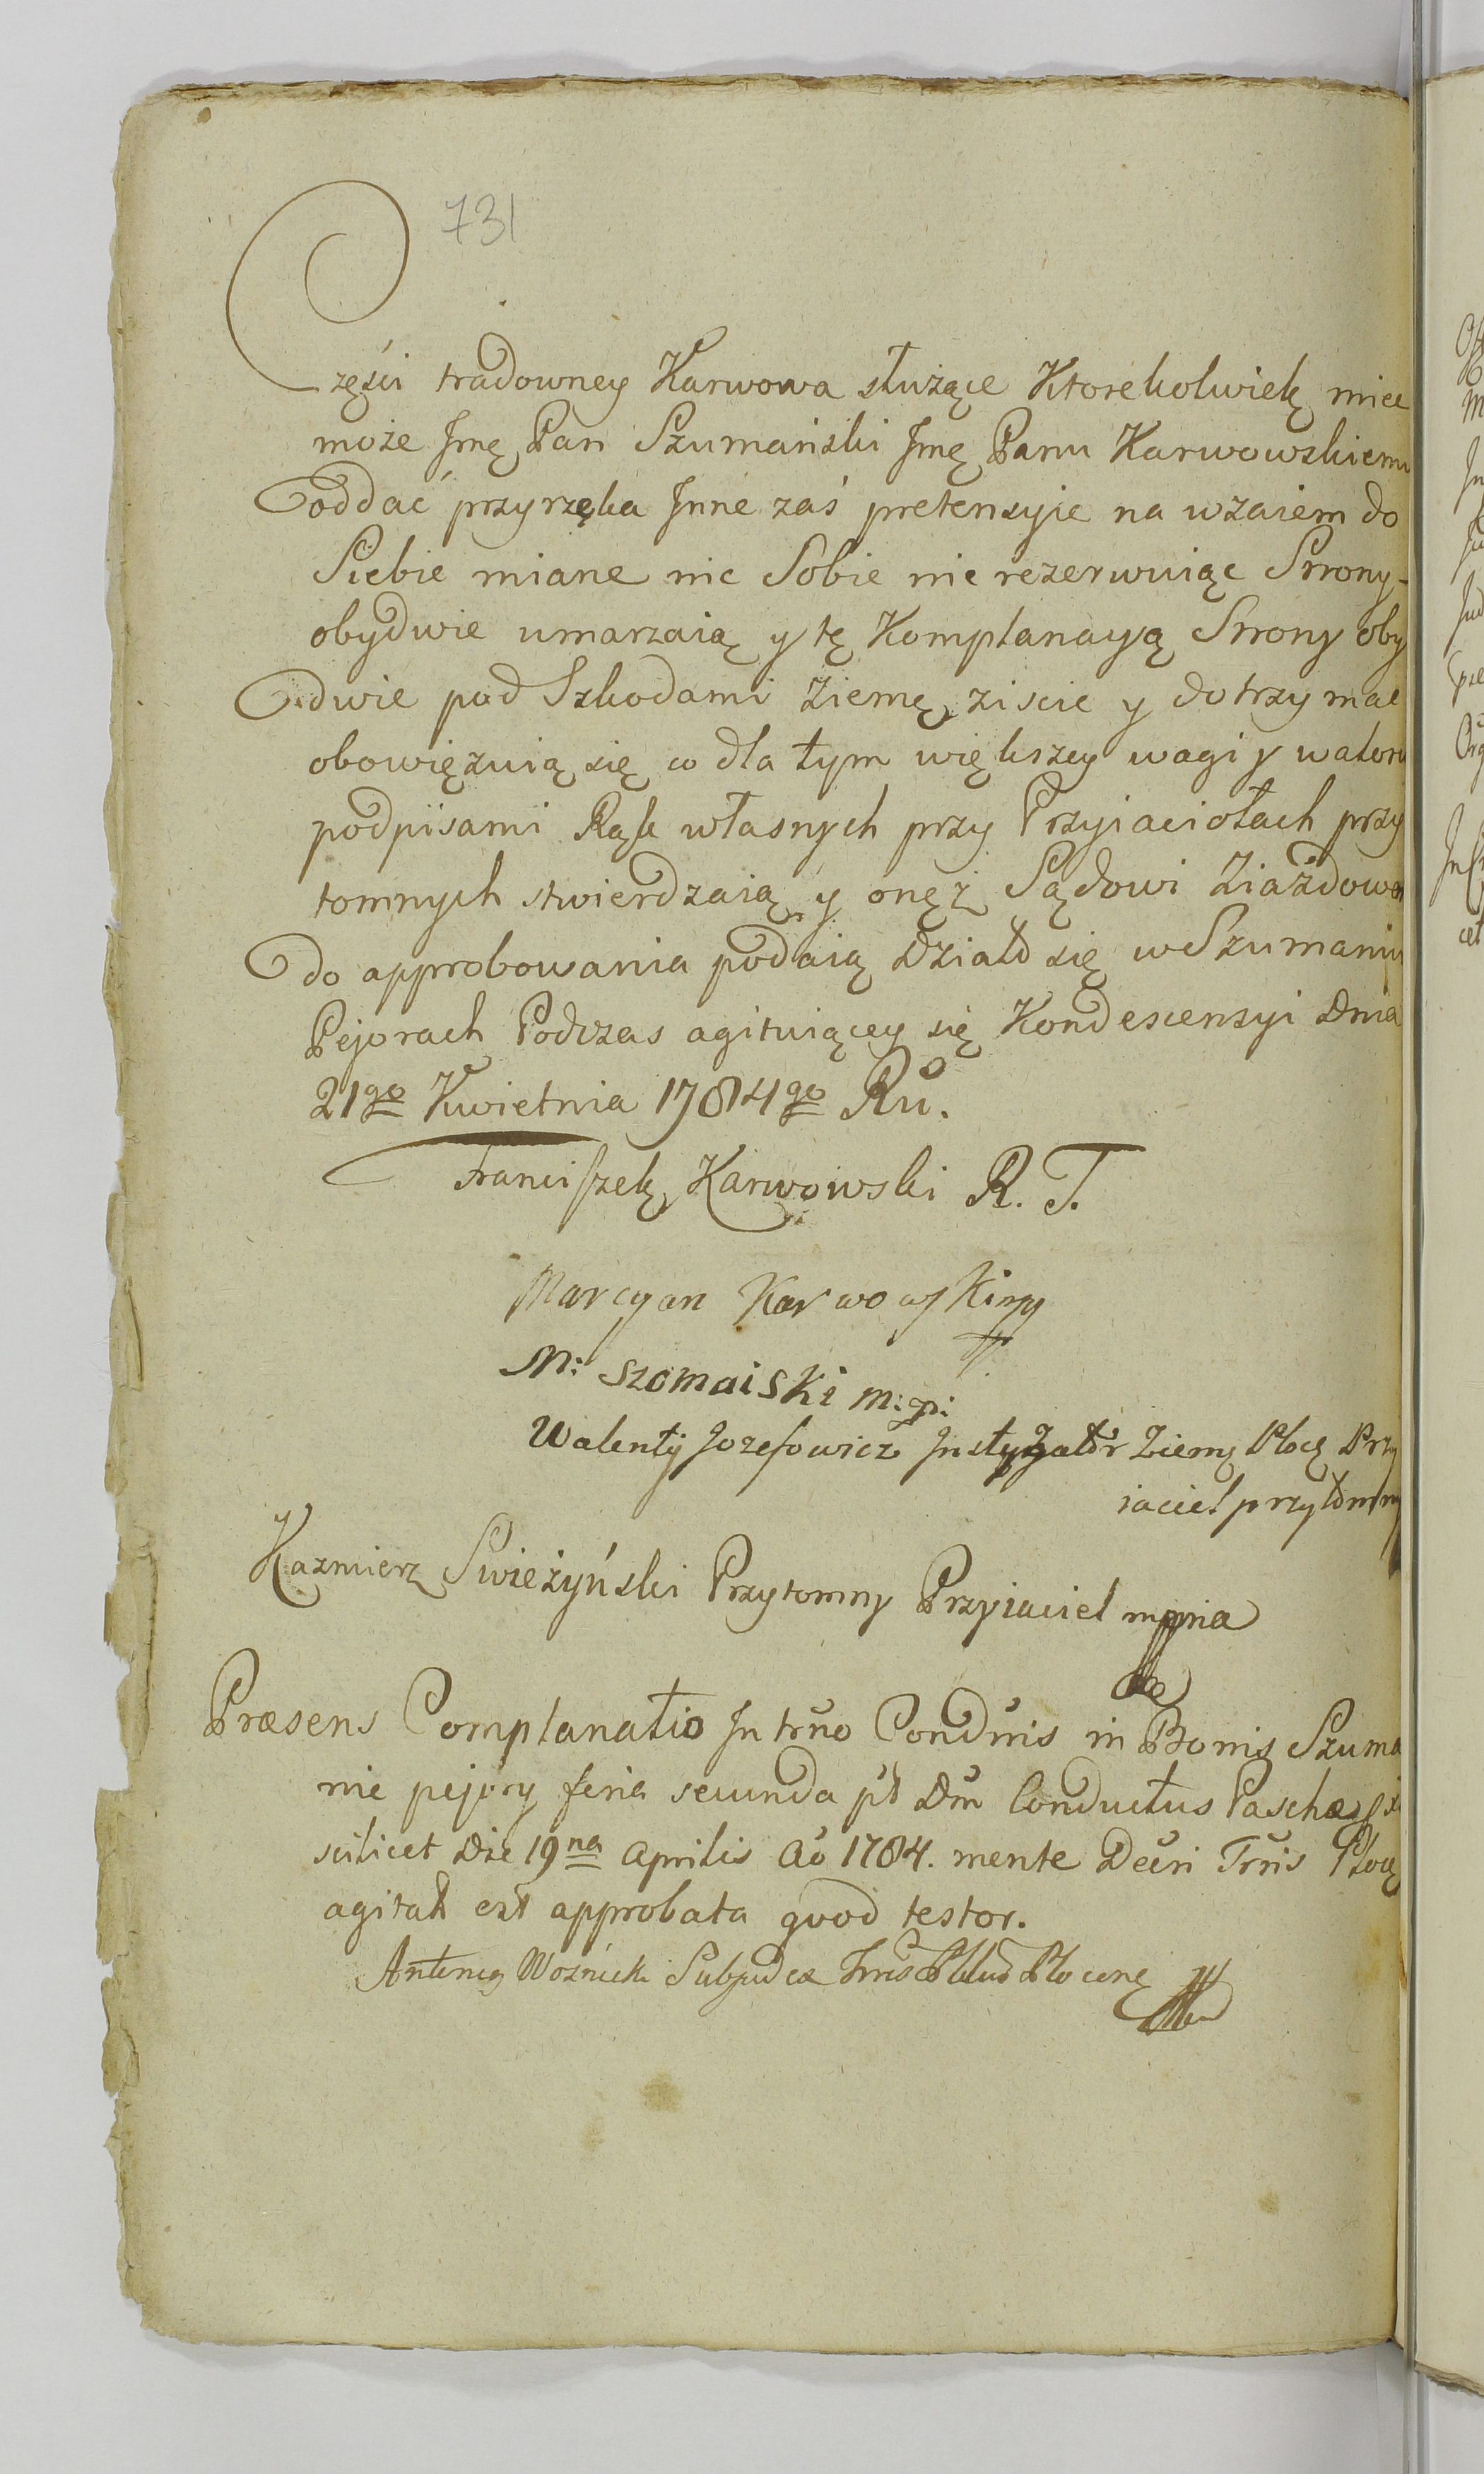 731
Części tradowney Karwowa służące Ktorekolwiek miec
może Jmę Pan Szumański Jmę Panu Karwowskiemu
oddać przyrzęka Inne zaś pretensyie na wzaiem do
Siebie miane nic Sobie nie rezerwuiąc Strony-
obydwie umarzaią y tę Komplanacyą Strony oby
dwie pod Szkodami Ziemę ziscic y dotrzymac
obowięzuią się co dla tym większey wagi y waloru
podpisami Rąk własnych przy Przyiaciołach przy
tomnych stwierdzaią y onęż Sądowi Ziazdowe
do approbowania podaią Działo się w Szumaniu
Pejorach Podczas agituiącey się Kondescensyi Dnia
21go Kwietnia 1784go Ru.
Franciszek Karwowski R. T.
Marcyan Karwowski mp
M: szomaiski m:p:
Walenty Jozefowicz Instygator Ziemę Płocę Przy
iaciel przytomny
Kazmierz Swieżyński Przytomny Przyiaciel mppria
Præsens Complanatio In trno Condnis in Bonis Szuma
nie pejory feria secunda pt Dm Conductus Paschæ
scilicet Die 19na Aprilis Ao 1784. mente Decri Trnis Płocę
agitat est approbata quod testor.
Antoni Woznicki Subjudex Trris Płocenę